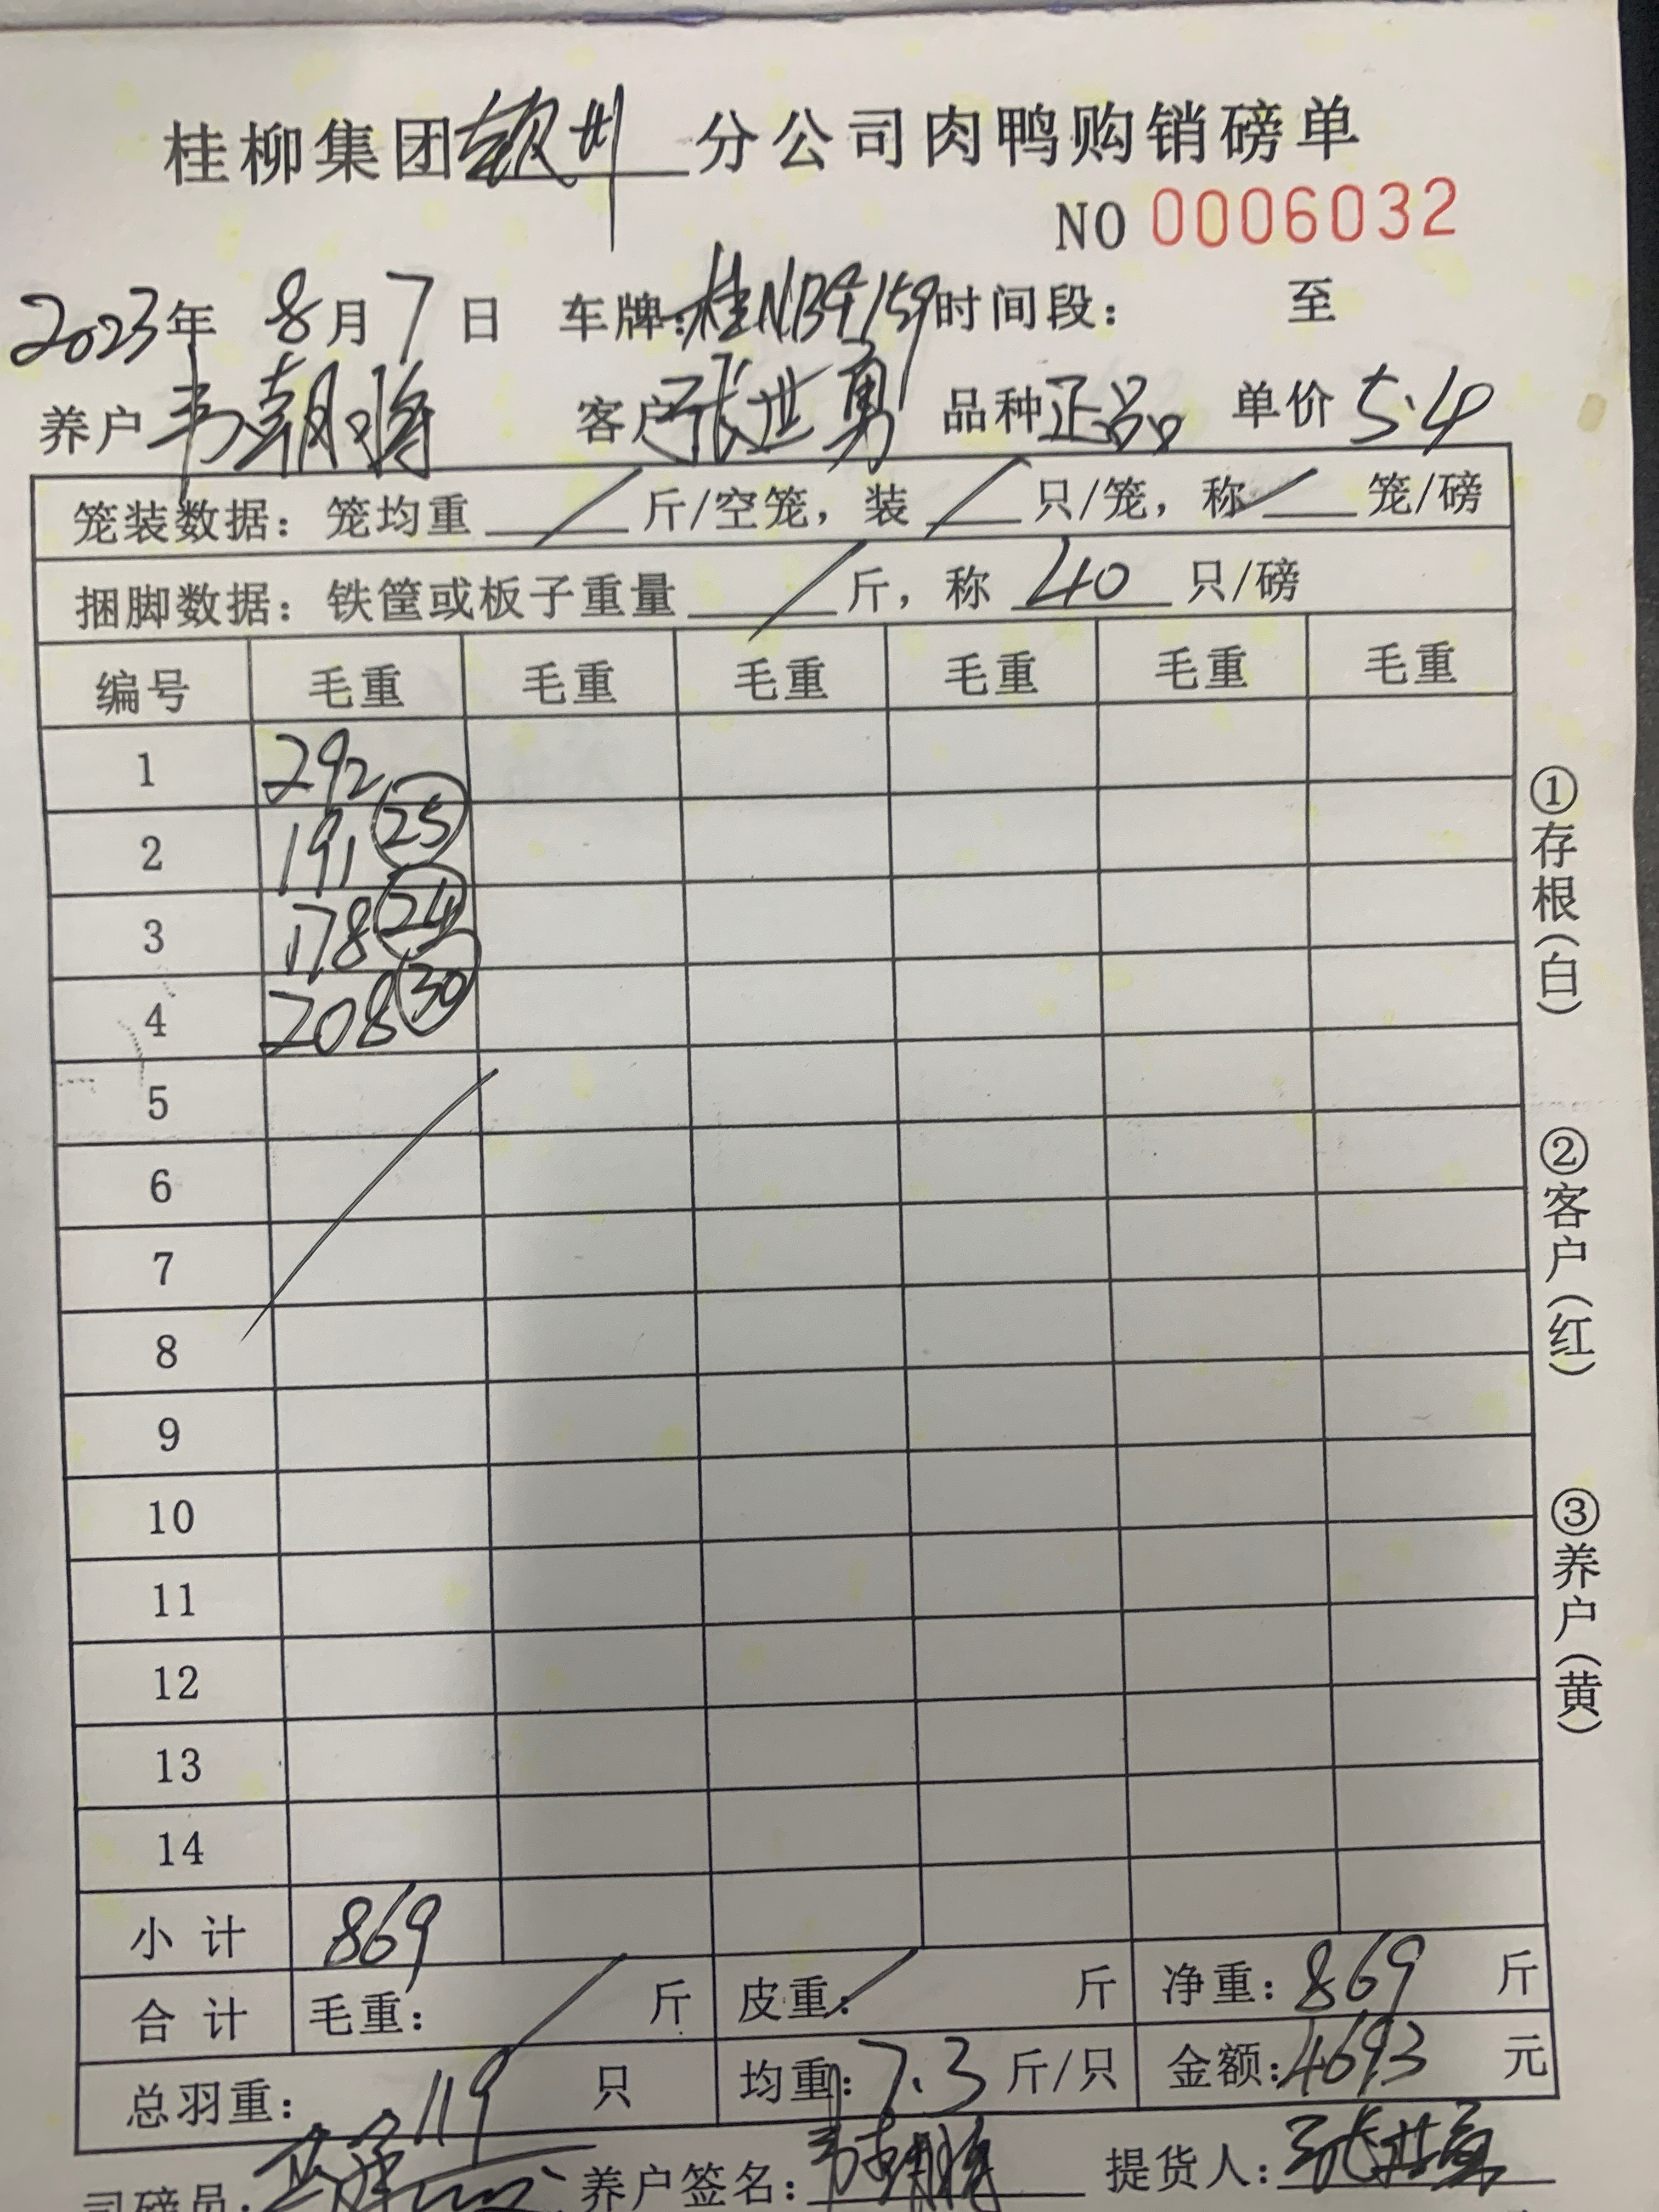 桂柳集团钦州分公司肉鸭购销磅单
NO 0006032
2023年 8月7日 车牌:桂NB9159时间段: 至
养户韦朝将 客户张世勇 品种正品 单价5.4
笼装数据: 笼均重 / 斤/空笼, 装 / 只/笼, 称 / 笼/磅
捆脚数据: 铁筐或板子重量 / 斤, 称 40 只/磅
编号 毛重 毛重 毛重 毛重 毛重 毛重
1 292
2 191 25
3 178 24
4 208 30
5
6
7
8
9
10
11
12
13
14
小计 869
合计 毛重: / 斤 皮重: / 斤 净重: 869 斤
总羽重: 119 只 均重: 7.3 斤/只 金额: 4693 元
司磅员: 养户签名: 提货人: 张世勇
①存根(白)
②客户(红)
③养户(黄)